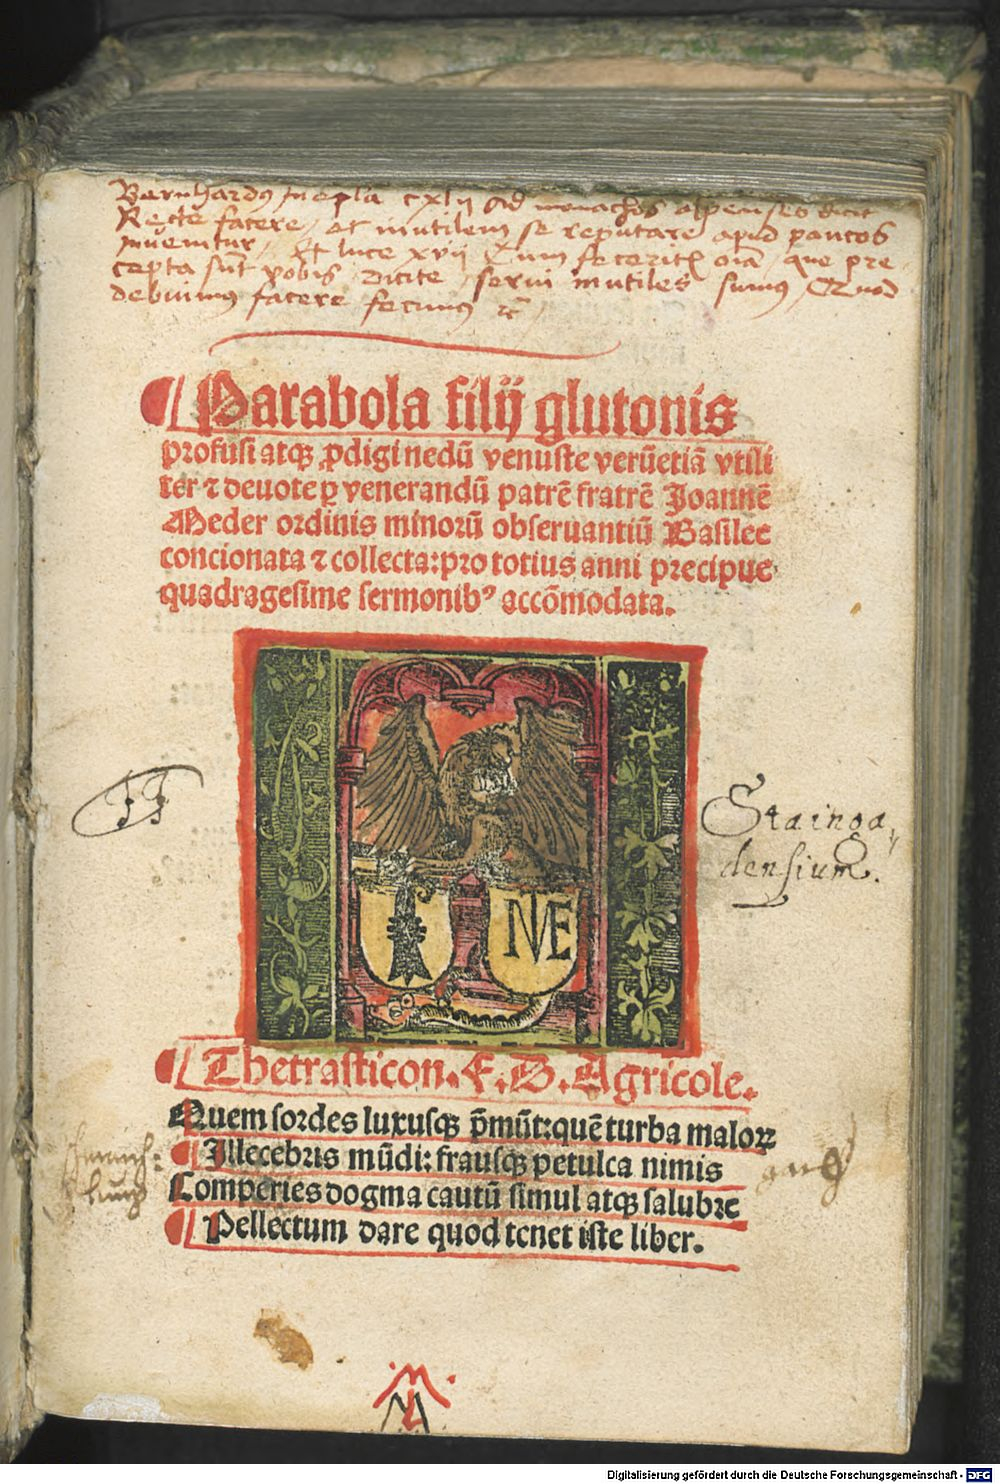 Bernhardus in epla cxlij ad monachos alpenses dicit
Recte facere, et inutilem se reputare, apud paucos
inuenitur, Et luce xvij Cum feceritis oīa, que pre,
cepta sūt vobis dicite, serui inutiles sumus, Quod
debuimus facere fecimus ꝛc̄
Parabola filij glutonis
profusi atqꝫ ꝓdigi nedū venuste verūetiā vtili
ter ⁊ deuote ꝑ venerandū patrē fratrē Joannē
Meder ordinis minorū obseruantiū Basilee
concionata ⁊ collecta: pro totius anni precipue
quadragesime sermonibꝰ accōmodata.
TT
Stainga„
densium.
MVE
Thetrasticon. F. B. Agricole.
Quem sordes luxusqꝫ p̄mūt: quē turba maloꝝ
Illecebris mūdi: frausqꝫ petulca nimis
Comperies dogma cautū simul atqꝫ salubre
Pellectum dare quod tenet iste liber.
Digitalisierung gefördert durch die Deutsche Forschungsgemeinschaft - DFG